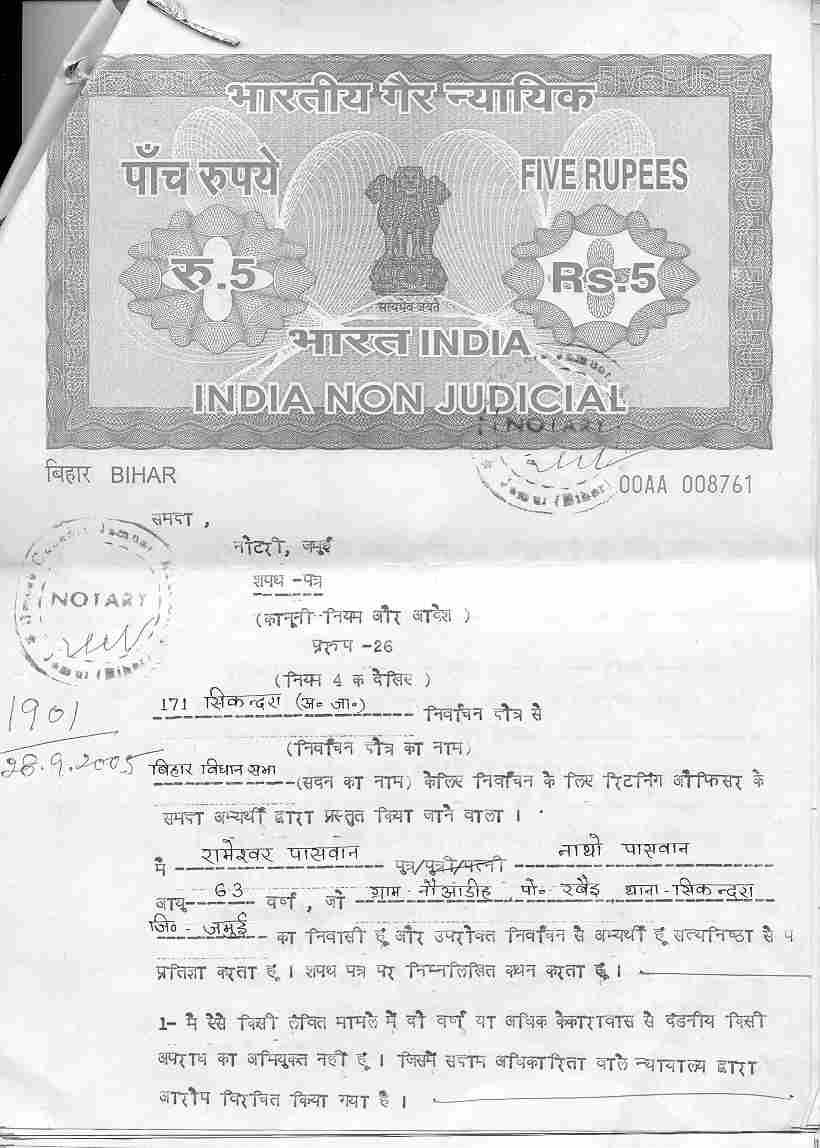 भारतीय गैर न्यायिक
पाँच रुपये
FIVE RUPEES
रु.5
Rs.5
सत्यमेव जयते
भारत INDIA
INDIA NON JUDICIAL
NOTARY
Jamui (Bihar)
बिहार BIHAR
00AA 008761
समक्ष,
नोटरी, जमुई
शपथ -पत्र
NOTARY
Jamui (Bihar)
(कानूनी नियम और आदेश )
प्ररुप -26
(नियम 4 क देखिए )
1901
28.9.2005
171 सिकन्दरा (अ० जा०) निर्वाचन क्षेत्र से
(निर्वाचन क्षेत्र का नाम)
बिहार विधान सभा (सदन का नाम) केलिए निर्वाचन के लिए रिटर्निंग ऑफिसर के
समक्ष अभ्यर्थी द्वारा प्रस्तुत किया जाने वाला ।
मै रामेश्वर पासवान पुत्र/पुत्री/पत्नी नाथो पासवान
आयु 63 वर्ष , जो ग्राम-नौआडीह पो०- रवैइ थाना-सिकन्दरा
जि०- जमुई का निवासी हूं और उपरोक्त निर्वाचन से अभ्यर्थी हूं सत्यनिष्ठा से प
प्रतिज्ञा करता हूं । शपथ पत्र पर निम्नलिखित कथन करता हूं ।
1- मै ऐसे किसी लंवित मामले में दो वर्ष या अधिक केकारावास से दंडनीय किसी
अपराध का अभियुक्त नहीं हूं । जिसमें सक्षम अधिकारिता वाले न्यायालय द्वारा
आरोप विरचित किया गया है ।